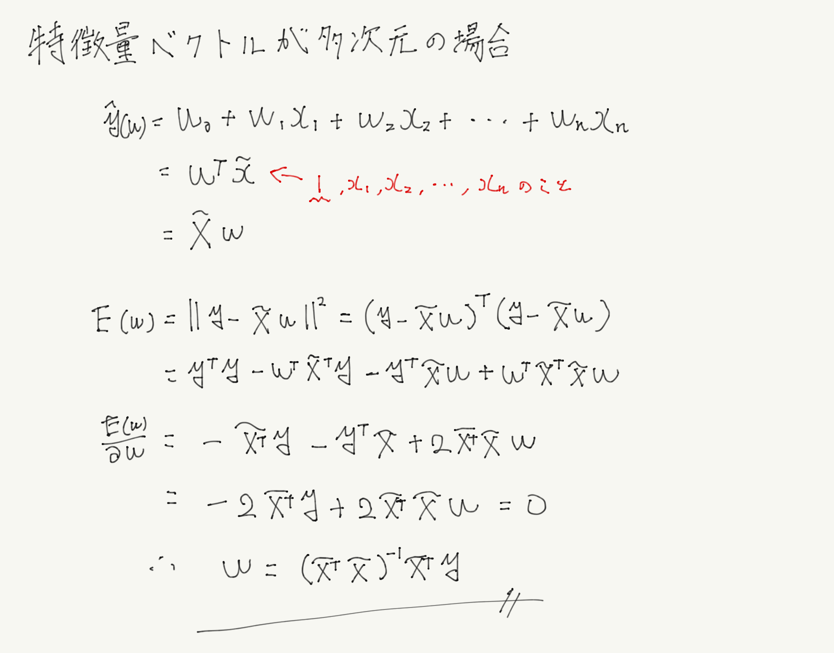 特徴量ベクトルが多次元の場合
ŷ(w) = w₀ + w₁x₁ + w₂x₂ + ⋯ + wₙxₙ
= wᵀx̃ ← 1, x₁, x₂, ⋯, xₙ のこと
= X̃w
E(w) = ||y - X̃w||² = (y - X̃w)ᵀ(y - X̃w)
= yᵀy - wᵀX̃ᵀy - yᵀX̃w + wᵀX̃ᵀX̃w
E(w)/∂w = - X̃ᵀy - yᵀX̃ + 2X̃ᵀX̃w
= - 2X̃ᵀy + 2X̃ᵀX̃w = 0
∴ w = (X̃ᵀX̃)⁻¹X̃ᵀy